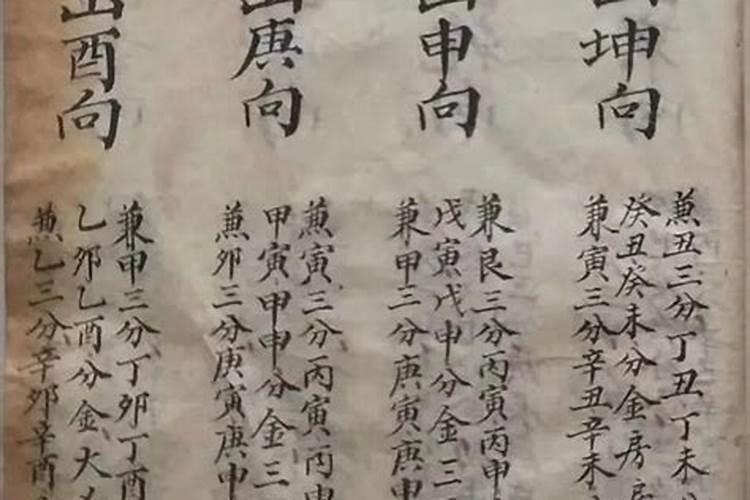 山坤向
兼丑三分丁丑丁未
癸丑癸未分金房
兼寅三分辛丑辛未
山申向
兼艮三分丙寅丙申
戊寅戊申分金三
兼甲三分庚寅庚申
山庚向
兼寅三分丙寅丙申
甲寅甲申分金三
兼卯三分庚寅庚申
山酉向
兼甲三分丁卯丁酉
乙卯乙酉分金大
兼乙三分辛卯辛酉